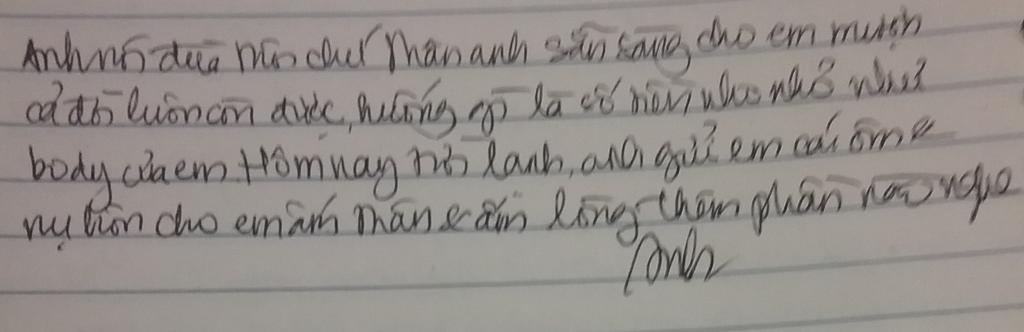 Anh nói đùa mà chứ Thân anh sẵn sàng cho em mượn
cả đời luôn còn được, huống gì là có mỗi nho nhỏ như
body của em Hôm nay trời lạnh, anh gửi em cái ôm &
nụ hôn cho em ấm thân & ấm lòng thêm phần nào nghe
Anh